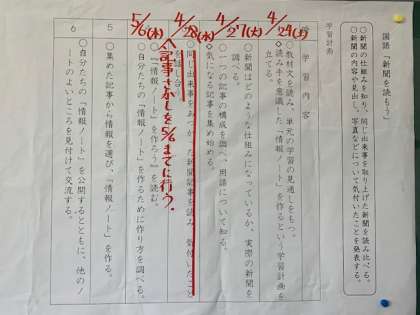 国語「新聞を読もう」
○新聞の仕組みを知り、同じ出来事を取り上げた新聞を読み比べる。
○新聞の内容や見出し、写真などについて気付いたことを発表する。
学習計画
学習内容
○教材文を読み、単元の学習の見通しをもつ。
◇読み手を意識した「情報ノート」を作るという学習計画を
立てる。
○新聞はどのような仕組みになっているか、実際の新聞を
調べる。
○一つの記事の構成を調べ、用語について知る。
◇気になる記事を集め始める。
○同じ出来事をあつかった新聞記事を読み、気付いたこと
を話し合う。
○「『情報ノート』を作ろう」を読む。
○自分たちの「情報ノート」を作るために作り方を調べる。
5
○集めた記事から情報を選び、「情報ノート」を作る。
6
○自分たちの「情報ノート」を公開するとともに、他のノ
ートのよいところを見付けて交流する。
4/27(火)
4/28(水)
5/6(木)
記事さがしを5/6までに行う。